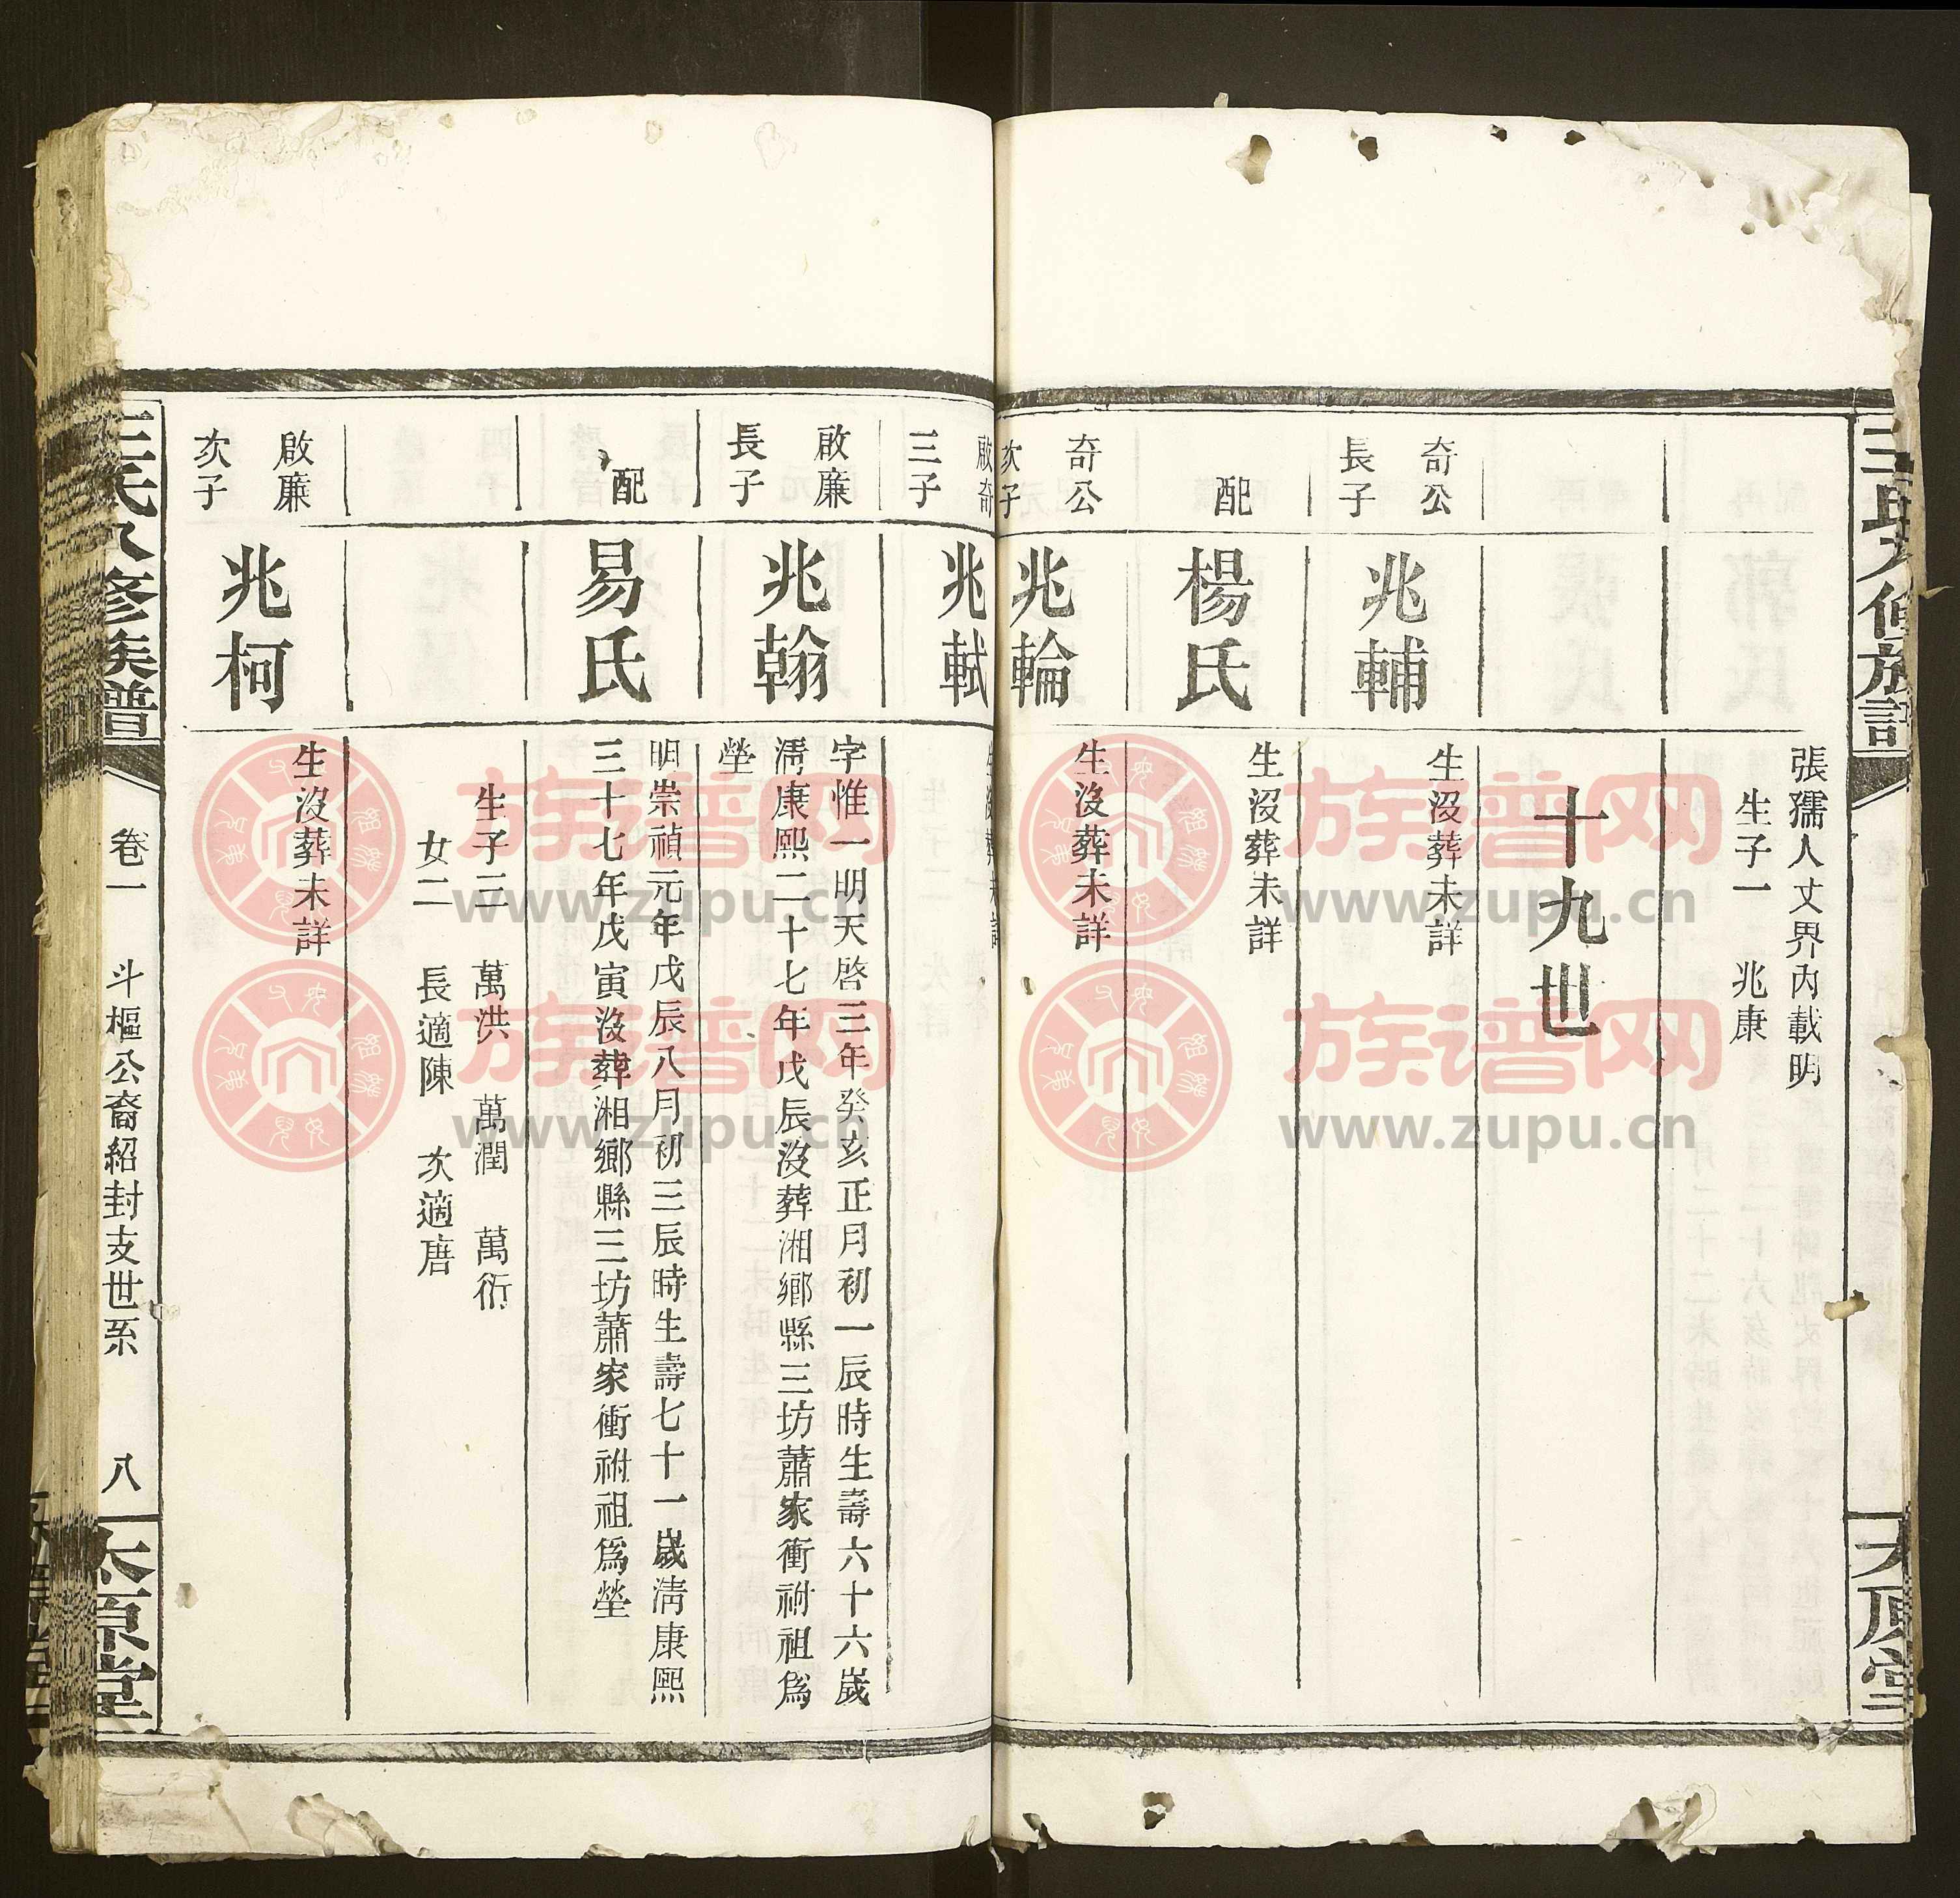 張孺人丈界內載明
生子一　兆康
十九世
奇公
長子
兆輔
生沒葬未詳
配
楊氏
生沒葬未詳
奇公
次子
兆輪
生沒葬未詳
啟奇
三子
兆軾
生沒葬未詳
啟廉
長子
兆翰
字惟一明天啓三年癸亥正月初一辰時生壽六十六歲
淸康熙二十七年戊辰沒葬湘鄉縣三坊蕭家衝祔祖爲
塋
配
易氏
明崇禎元年戊辰八月初三辰時生壽七十一歲淸康熙
三十七年戊寅沒葬湘鄉縣三坊蕭家衝祔祖爲塋
生子三　萬洪　萬潤　萬衍
女二　長適陳　次適唐
啟廉
次子
兆柯
生沒葬未詳
修族譜
卷一　斗樞公裔紹封支世系　八
太原堂
族谱网
www.zupu.cn
族谱网
www.zupu.cn
族谱网
www.zupu.cn
族谱网
www.zupu.cn